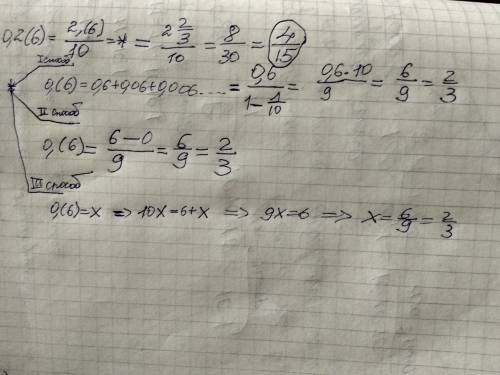 0,2(6) = 2,(6)/10 = * = 2 2/3/10 = 8/30 = 4/15
* I способ
0,(6) = 0,6+0,06+0,006..... = 0,6/1-1/10 = 0,6·10/9 = 6/9 = 2/3
II способ
0,(6) = 6-0/9 = 6/9 = 2/3
III способ
0,(6) = x => 10x = 6+x => 9x=6 => x = 6/9 = 2/3